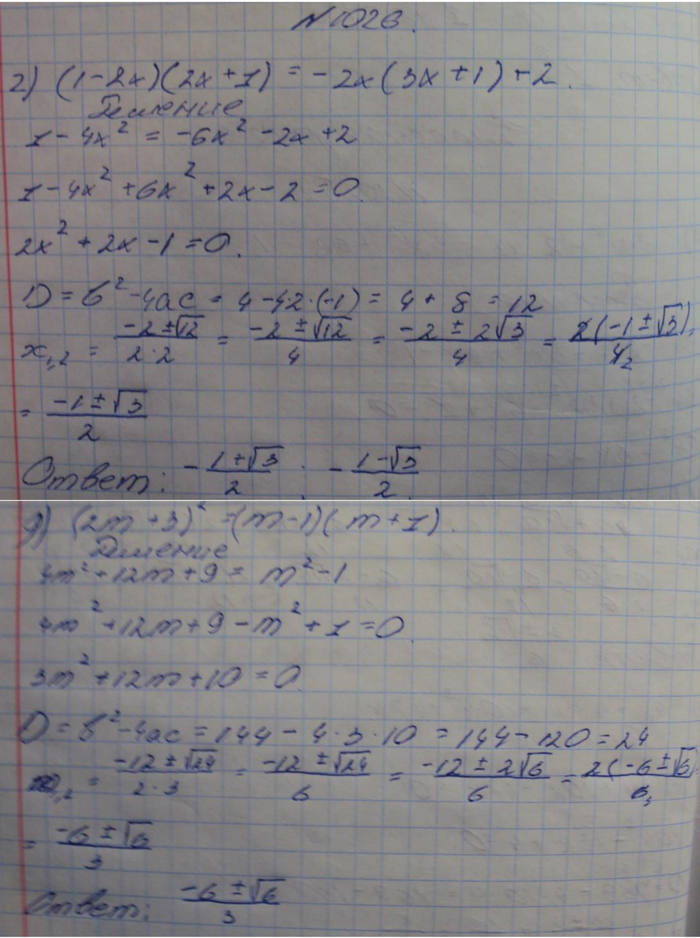 N 1026.
2) (1-2x)(2x+1) = -2x(3x+1)+2.
Решение
1-4x² = -6x²-2x+2
1-4x²+6x²+2x-2=0.
2x²+2x-1=0.
D = b²-4ac = 4-4·2·(-1) = 4+8 = 12
x₁,₂ = (-2±√12)/(2·2) = (-2±√12)/4 = (-2±2√3)/4 = 2(-1±√3)/4₂ =
= (-1±√3)/2
Ответ: -(1+√3)/2; -(1-√3)/2.
g) (2m+3)² = (m-1)(m+1).
Решение
4m²+12m+9 = m²-1
4m²+12m+9-m²+1=0.
3m²+12m+10=0.
D = b²-4ac = 144-4·3·10 = 144-120=24
₁,₂ = (-12±√24)/(2·3) = (-12±√24)/6 = (-12±2√6)/6 = 2(-6±√6)/6₃
= (-6±√6)/3
Ответ: (-6±√6)/3